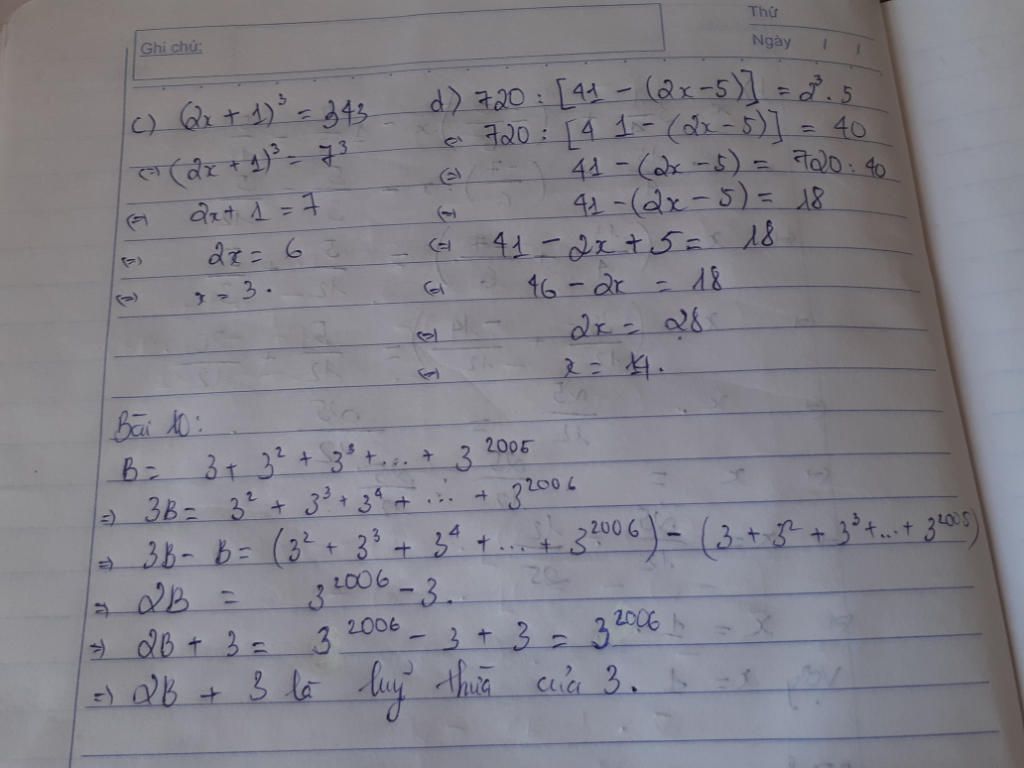 Thứ
Ghi chú:
Ngày / /
c) (2x + 1)³ = 343
⇔ (2x + 1)³ = 7³
⇔ 2x + 1 = 7
⇔ 2x = 6
⇔ x = 3.
d) 720 : [41 – (2x – 5)] = 2³ . 5
⇔ 720 : [41 – (2x – 5)] = 40
⇔ 41 – (2x – 5) = 720 : 40
⇔ 41 – (2x – 5) = 18
⇔ 41 – 2x + 5 = 18
⇔ 46 – 2x = 18
⇔ 2x = 28
⇔ x = 14.
Bài 10:
B = 3 + 3² + 3³ + ... + 3²⁰⁰⁵
⇒ 3B = 3² + 3³ + 3⁴ + ... + 3²⁰⁰⁶
⇒ 3B – B = (3² + 3³ + 3⁴ + ... + 3²⁰⁰⁶) – (3 + 3² + 3³ + ... + 3²⁰⁰⁵)
⇒ 2B = 3²⁰⁰⁶ – 3.
⇒ 2B + 3 = 3²⁰⁰⁶ – 3 + 3 = 3²⁰⁰⁶
⇒ 2B + 3 là luỹ thừa của 3.